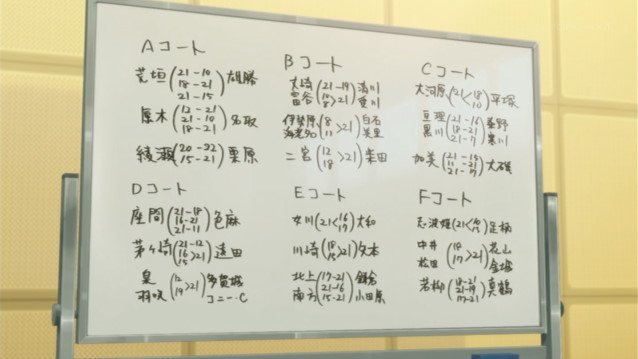 Aコート
荒垣 21-10 雄勝
18-21
21-15
厚木 12-21 名取
21-10
18-21
綾瀬 20-22 栗原
15-21
Bコート
大崎 21-19 清川
富谷 8>21 愛川
伊勢原 8>21 白石
海老名 11 美里
二宮 12>21 柴田
18
Cコート
大河原 21<18 平塚
10
亘理 21-16 秦野
黒川 18-21 寒川
21-17
加美 21-19 大磯
11-21
21-17
Dコート
座間 21-18 色麻
16-21
21-11
茅ヶ崎 21-12 遠田
16>21
15
泉 12>21 多賀城
羽咲 19 コニー・C
Eコート
女川 21<16 大和
17
川崎 18>21
15
北上 17-21 鎌倉
南方 21-16 小田原
15-21
Fコート
志波姫 21<10 足柄
15
中井 18>21 花山
松田 17 金成
若柳 18-21 真鶴
21-19
17-21